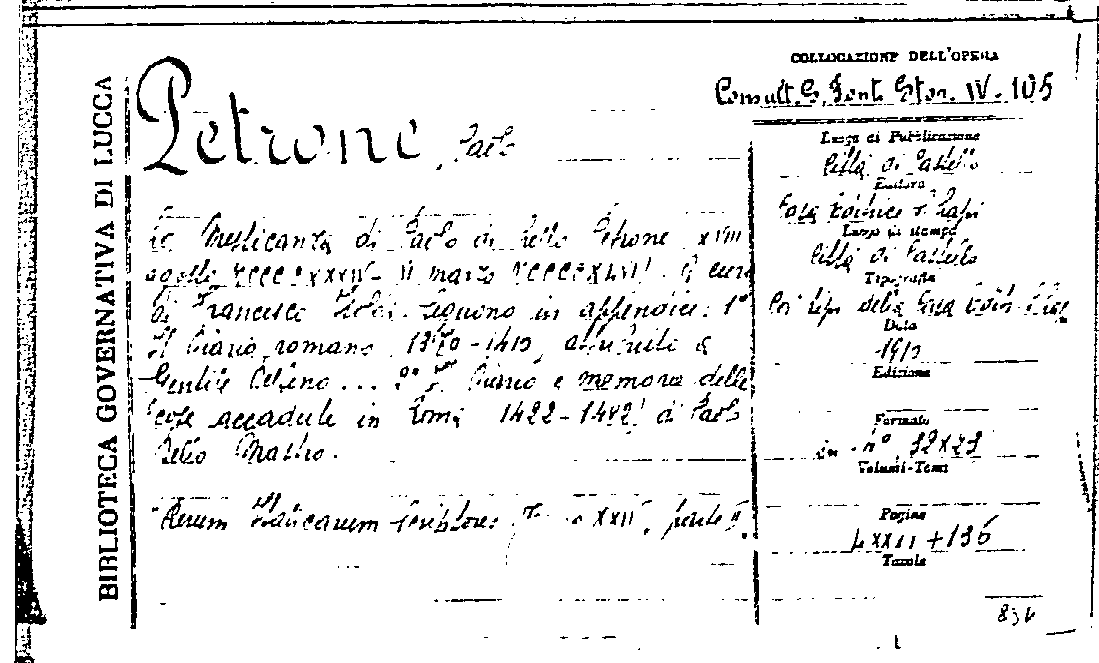 BIBLIOTECA GOVERNATIVA DI LUCCA
Petrone, Paolo
La Mesticanza di Paolo di Lello Petrone XVIII
agosto MCCCCXXXIV - VI marzo MCCCCXLVII. A cura
di Francesco Isoldi. Seguono in appendice: 1°
Il Diario romano, 1370-1410, attribuito a
Gentile Delsino... 2° Il Diario e memorie delle
cose accadute in Roma 1422-1482 di Paolo
dello Mastro.
Rerum Italicarum Scriptores, Tomo XXIV, parte II.
COLLOCAZIONE DELL'OPERA
Consult. G. Font. Stor. IV. 105
Luogo di Pubblicazione
Città di Castello
Editore
Casa Editrice S. Lapi
Luogo di stampa
Città di Castello
Tipografia
Coi tipi della Casa Edit.
Data
1910
Edizione
Formato
in - n° 32X23
Volumi-Tomi
Pagine
LXXII + 136
Tavole
834